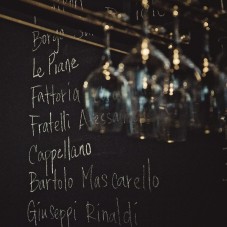 Borgo
Le Piane
Fattoria
Fratelli Alessan
Cappellano
Bartolo Mascarello
Giuseppi Rinaldi